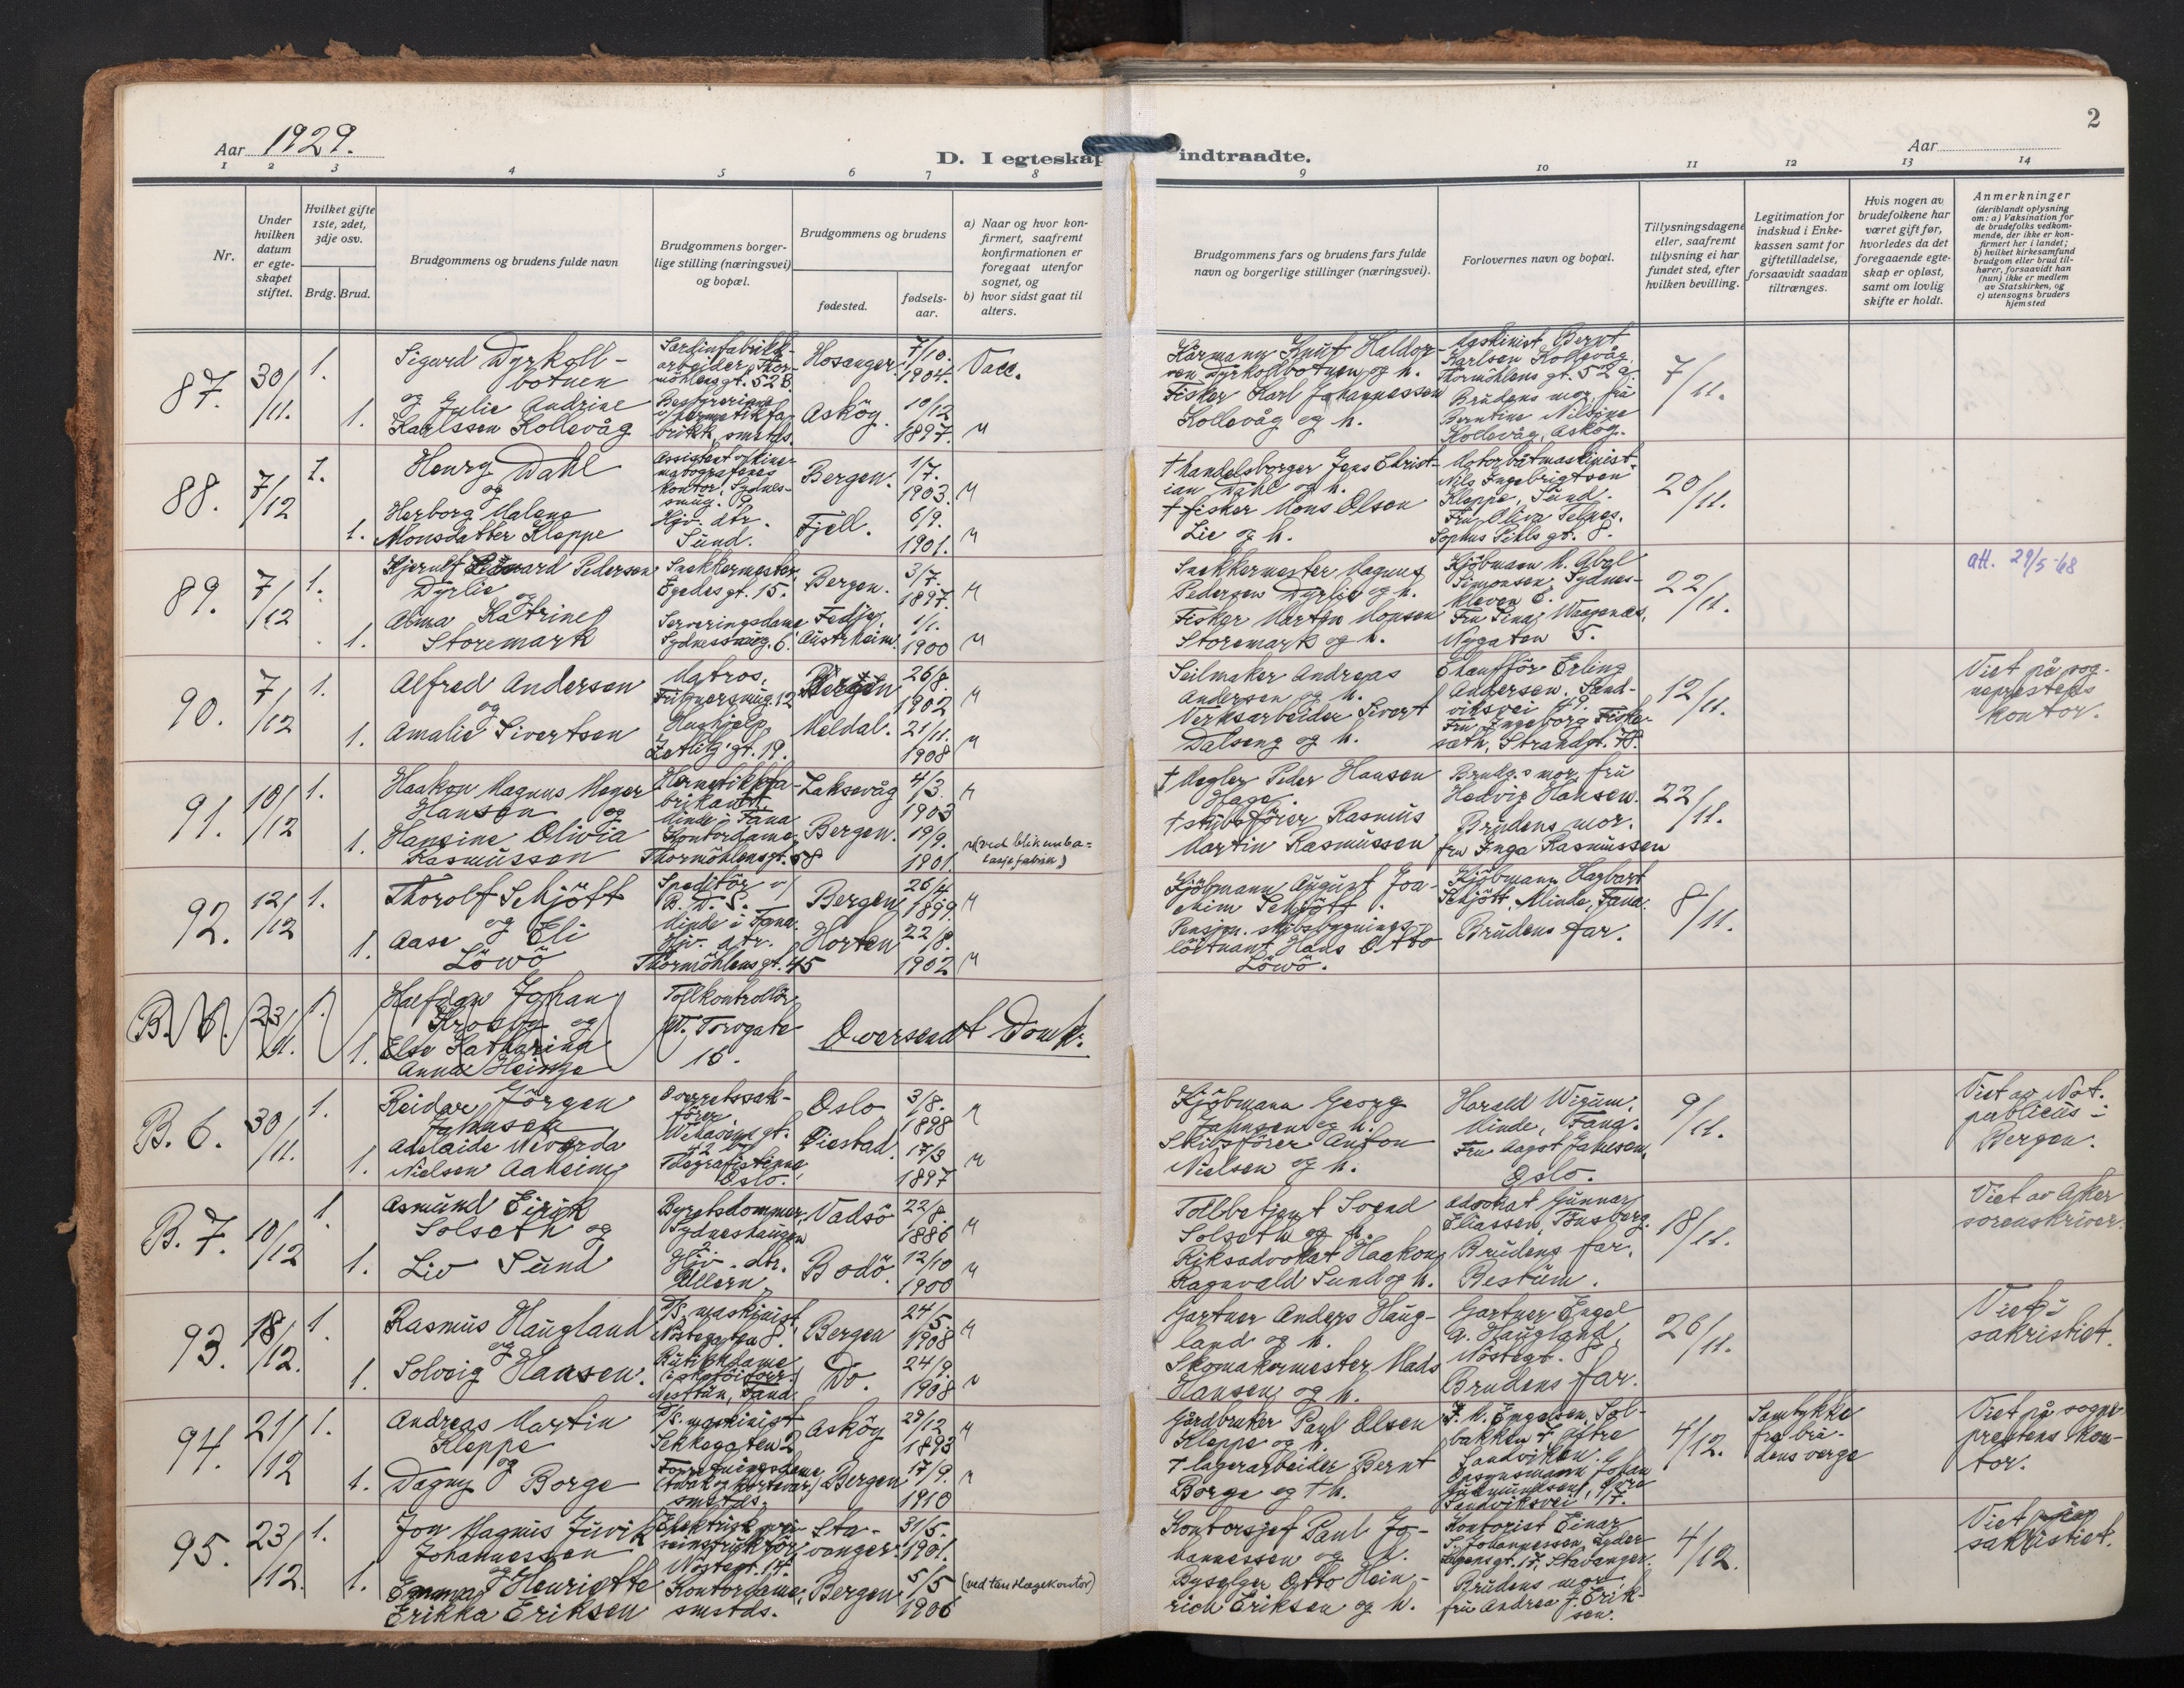 Aar 1929.
D. I egteskap
indtraadte.
Aar
2
1 2 3 4 5 6 7 8 9 10 11 12 13 14
Nr.
Under
hvilken
datum
er egte-
skapet
stiftet.
Hvilket gifte
1ste, 2det,
3dje osv.
Brdg. Brud.
Brudgommens og brudens fulde navn
Brudgommens borger-
lige stilling (næringsvei)
og bopæl.
Brudgommens og brudens
fødested.
fødsels-
aar.
a) Naar og hvor kon-
firmert, saafremt
konfirmationen er
foregaat utenfor
sognet, og
b) hvor sidst gaat til
alters.
Brudgommens fars og brudens fars fulde
navn og borgerlige stillinger (næringsvei).
Forlovernes navn og bopæl.
Tillysningsdagene
eller, saafremt
tillysning ei har
fundet sted, efter
hvilken bevilling.
Legitimation for
indskud i Enke-
kassen samt for
giftetilladelse,
forsaavidt saadan
tiltrænges.
Hvis nogen av
brudefolkene har
været gift før,
hvorledes da det
foregaaende egte-
skap er opløst,
samt om lovlig
skifte er holdt.
Anmerkninger
(deriblandt oplysning
om: a) Vaksination for
de brudefolks vedkom-
mende, der ikke er kon-
firmert her i landet;
b) hvilket kirkesamfund
brudgom eller brud til-
hører, forsaavidt han
(hun) ikke er medlem
av Statskirken, og
c) utensogns bruders
hjemsted
87. 30/11. 1. 1.
Sigurd Dyrkoll-
botnen
og Julie Andrine
Karlssen Kollevåg
Sardinfabrikk-
arbeider, Thor-
möhlensgt. 52 B.
Bestyrerinne
v/ hermetikkfa-
brikk, smstds.
Hosanger. 7/10. 1904. Vacc.
Askög. 10/12 1897. "
Kårmann Knut Haldor-
sen Dyrkolbotnen og h.
Fisker Karl Johannessen
Kollevåg og h.
Maskinist Bernt
Karlsen Kollevåg.
Thormöhlens gt. 52 a.
Brudens mor, fru
Berntine Nilsine
Kollevåg, Askög.
7/11.
88. 7/12 1. 1.
Henry Dahl
og
Herborg Malene
Monsdatter Kleppe
Assistent v/ kine-
matografenes
kontor, Sydnes-
smug. 9
Hjv. dtr.
Sund.
Bergen. 1/7. 1903. "
Fjell. 6/9. 1901. "
† Handelsborger Jens Christ-
ian Dahl og h.
† fisker Mons Olsen
Lie og h.
Motorbåtmaskinist
Nils Ingebrigtsen
Kleppe, Sund.
Fru Oliva Telnes.
Sophus Pihls gt. 8.
20/11.
89. 7/12 1. 1.
Hjerulf Edvard Pedersen
Dyrlie
og
Alma Katrine
Storemark
Snekkermester,
Egedesgt. 15.
Serveringsdame
Sydnessmug. 6.
Bergen. 3/7. 1897. "
Fedje,
Austrheim. 1/1. 1900 "
Snekkermester Magnus
Pedersen Dyrlie og h.
Fisker Martin Monsen
Storemark og h.
Kjöbmann M. Abel
Simonsen, Sydnes-
kleven 6.
Fru Tina Waagenæs,
Nygaten 5.
22/11.
att. 29/5-68
90. 7/12 1. 1.
Alfred Andersen
og
Amalie Sivertsen
Matros,
Friknersmug. 12
Hushjelp
Zetlitz' gt. 19.
Bergen 26/8. 1902 "
Meldal. 21/11. 1908 "
Seilmaker Andreas
Andersen og h.
Verksarbeider Sivert
Dalseng og h.
Chaufför Erling
Andersen, Sand-
viksvei 49.
Fru Ingeborg Fiske-
sæth, Strandgt. 78.
12/11.
Viet på sog-
neprestens
kontor.
91. 10/12 1. 1.
Haakon Magnus Meyer
Hansen og
Hansine Olivia
Rasmussen
Hermetikkfa-
brikant,
Minde i Fana
Kontordame,
Thormöhlensgt. 58
Laksevåg 4/3. 1903 "
Bergen. 19/9. 1901. " (ved blikemba-
lasjefabrik)
† Megler Peder Hansen
Hage.
† skibsförer Rasmus
Martin Rasmussen
Brudg.s mor, fru
Hedvig Hansen.
Brudens mor.
fru Inga Rasmussen
22/11.
92. 12/12 1. 1.
Thorolf Schjött
og
Aase Eli
Löwö
Speditör v/
B. D. S.
Minde i Fana.
Hjv. dtr.
Thormöhlensgt. 45
Bergen 26/4 1899. "
Horten 22/8. 1902 "
Kjöbmann August Joa-
chim Schjött.
Pensjon. skibsbygnings-
löitnant Hans O. Abo
Löwö.
Kjöbmann Hagbart
Schjött, Minde, Fana.
Brudens far.
8/11.
B. 6. 23/11. 1. 1.
Halfdan Johan
Krosby og
Else Katharina
Anna Heinge
Tollkontrollör
N. Torvgate
15.
Oversendt Domk.
B. 6. 30/11. 1. 1.
Reidar Jörgen
Johnsen
Adelaide Neverda
Nielsen Aaheim
Overrettssak-
förer
Telegrafistinne,
Oslo.
Oslo 3/8. 1898 "
17/3 1897 "
Kjöbmann Georg
Johnsen og h.
Skibsförer Anton
Nielsen og h.
Harald Wigum,
Minde, Fana.
Fru Aagot Johnsen,
Oslo.
9/11.
Viet av Not.
publicus i
Bergen.
B. 7. 10/12 1. 1.
Asmund Eirik
Solseth og
Liv Sund
Byrettsdommer,
Sydneshaugen
2
Hjv. dtr.
Ullern.
Vadsö 22/8. 1886 "
Bodö. 12/10 1900 "
Tollbetjent Svend
Solseth og h.
Riksadvokat Haakon
Ragnvald Sund og h.
Advokat Gunnar
Eliassen, Tönsberg.
Brudens far.
Bestum.
18/11.
Viet av Aker
sorenskriver.
93. 18/12. 1. 1.
Rasmus Haugland
og
Solveig Hansen.
D/S. maskinist
Nöstegaten 8.
Butikkdame
i skotöiforr.
Nesttun, Fana
Bergen 24/5. 1908 "
Do. 24/9. 1908 "
Gartner Anders Haug-
land og h.
Skomakermester Mads
Hansen og h.
Gartner Engel
A. Haugland,
Nöstegt. 8.
Brudens far.
26/11.
Viet i
sakristiet.
94. 21/12 1. 1.
Andreas Martin
Kleppe
og
Dagny Borge
D/S. maskinist
Sekkegaten 2
Forretningsdame
smstds.
Askög 29/12 1893 "
Bergen 17/9. 1910 "
Gårdbruker Paul Olsen
Kleppe og h.
† lagerarbeider Bernt
Borge og † h.
J. M. Engelsen, Sol-
bakken 7, Ytre
Sandviken.
Opsynsmann Johan
Gudmundsen, Övre
Sandviksvei 17.
4/12.
Samtykke
fra bru-
dens verge
Viet på sogne-
prestens kon-
tor.
95. 23/12. 1. 1.
Jon Magnus Juvik
Johannessen
og
Emma Henriette
Erikka Eriksen
Nöstegt. 14.
Kontordame,
smstds.
Sta-
vanger. 31/5. 1901.
Bergen 5/5 1906 (ved tannlægekontor)
Kontorsjef Paul Jo-
hannessen og h.
Byselger Otto Hein-
rich Eriksen og h.
Kontorist Einar
S. Johannessen, Lyder
Sagensgt. 17, Stavanger.
Brudens mor
fru Andrea J. Erik-
sen.
4/12.
Viet i
sakristiet.